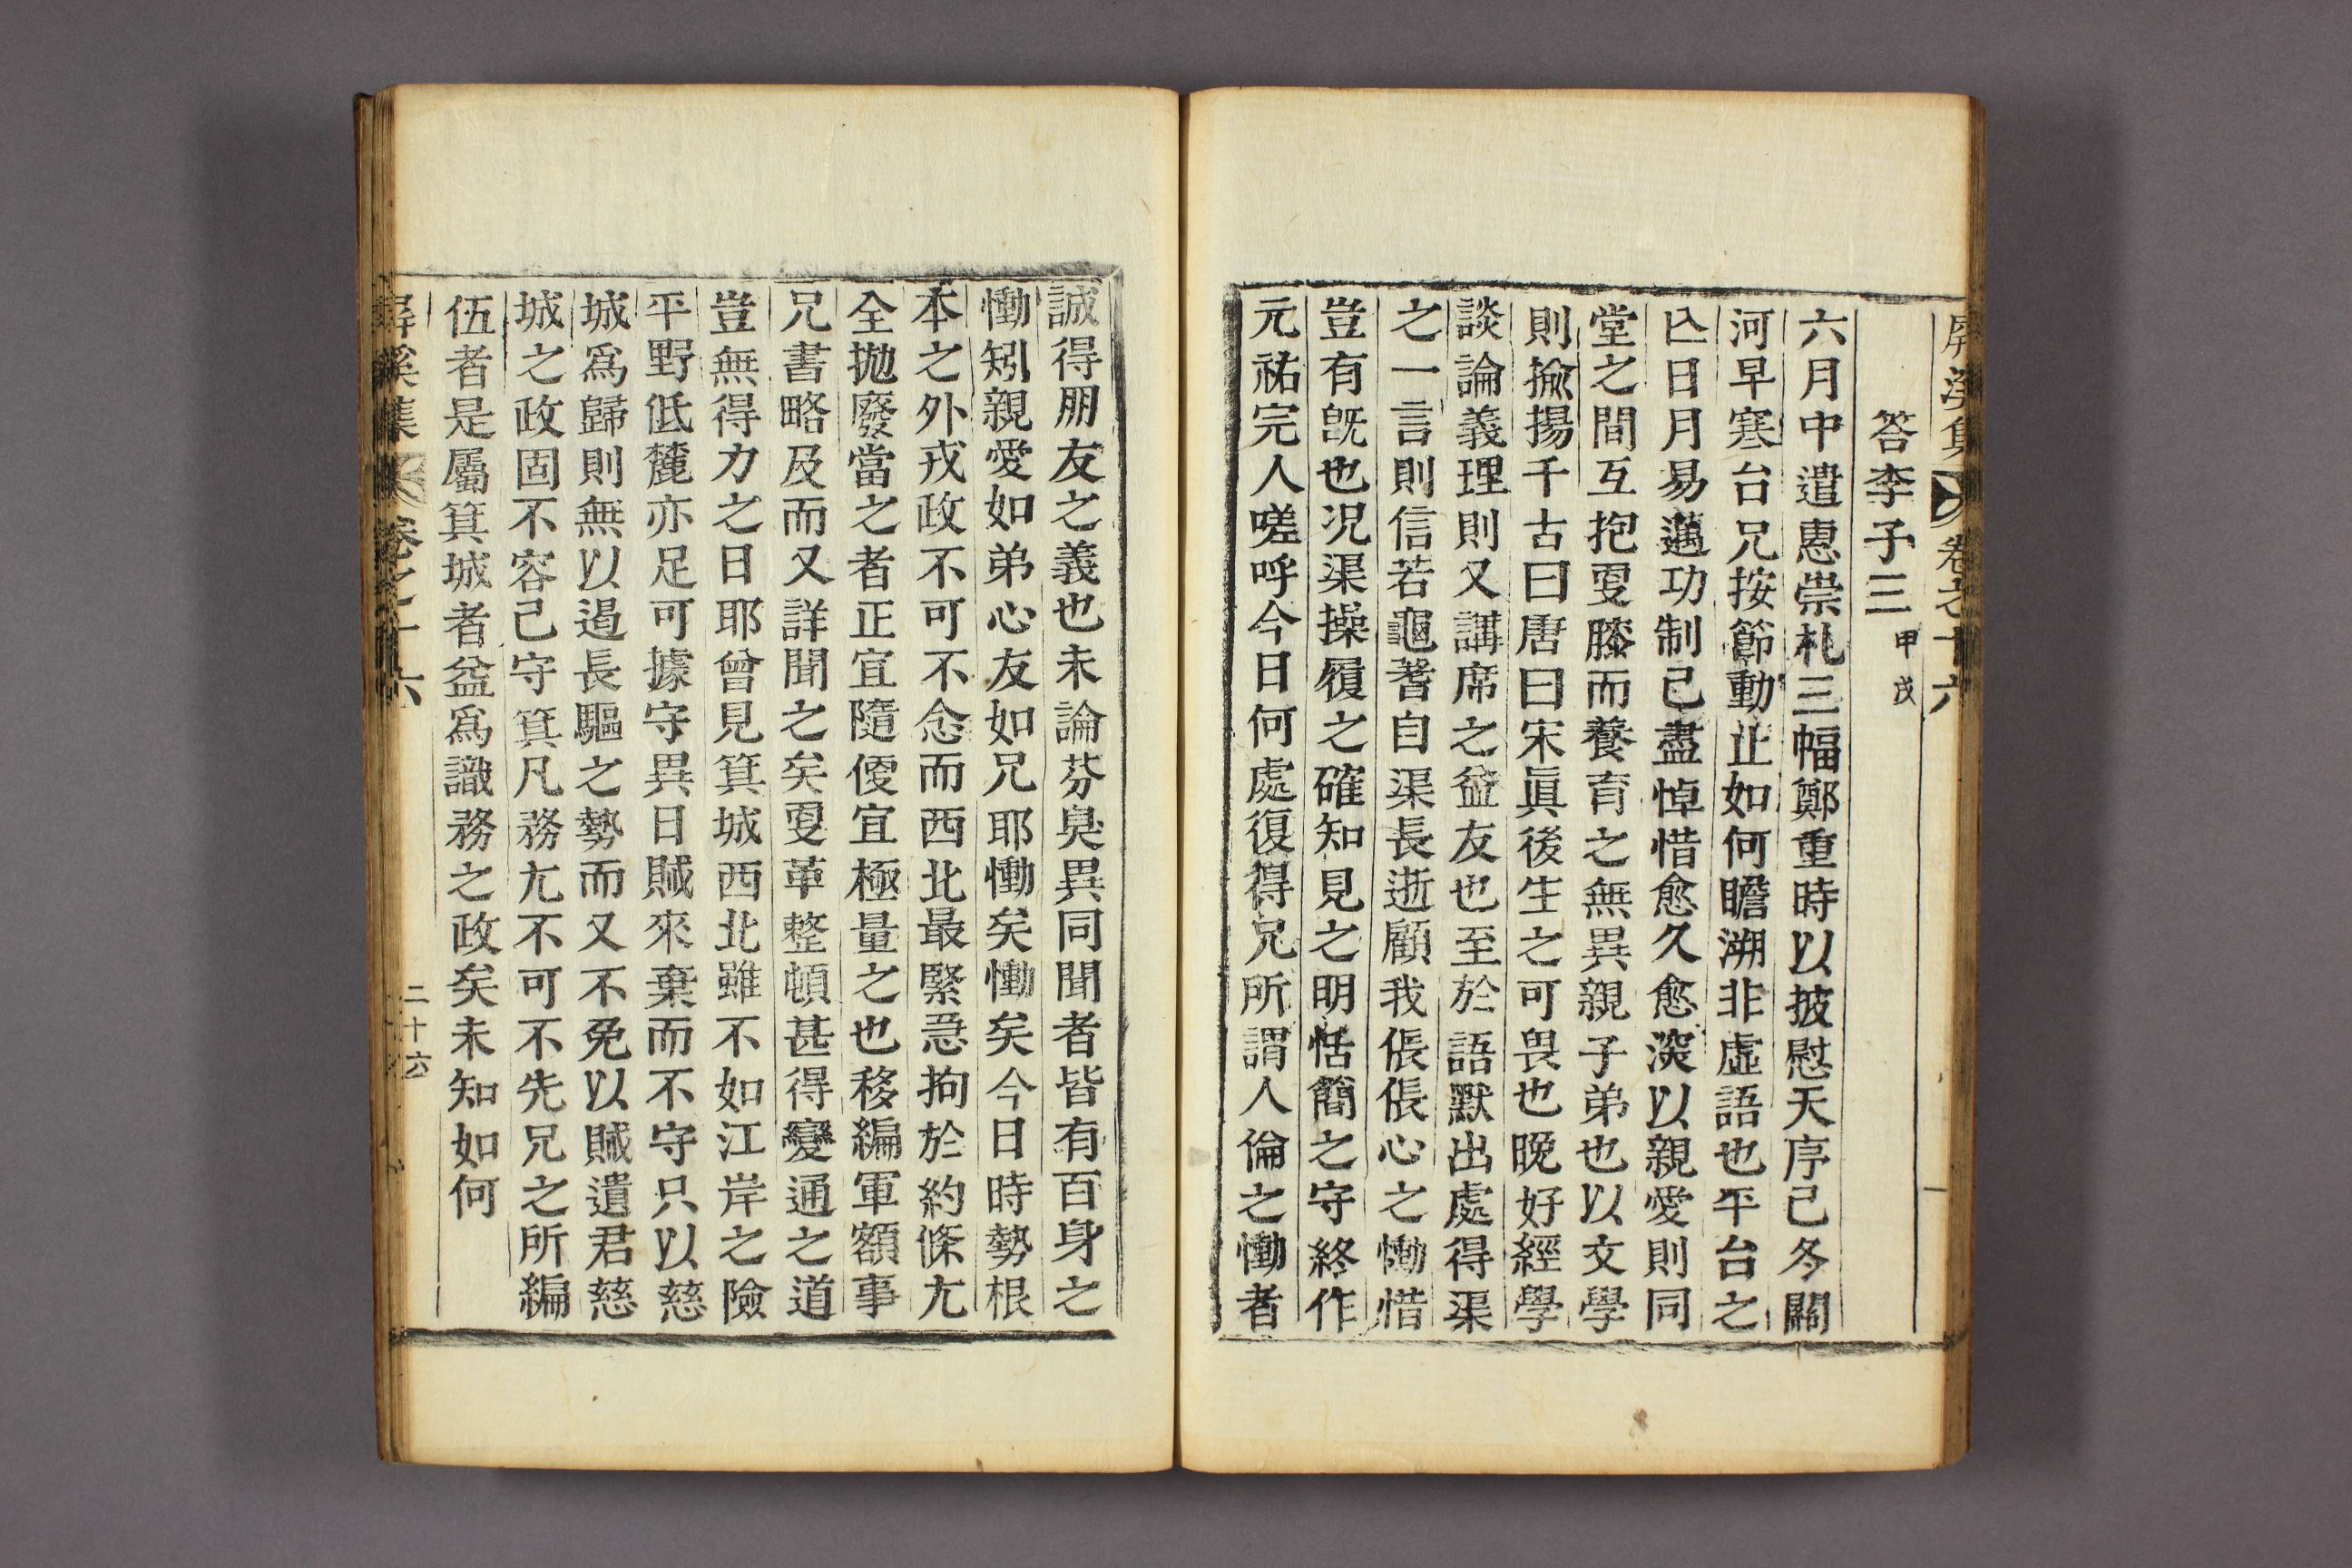 屏溪集 卷之十六
答李子三 甲戌
六月中遣惠崇札三幅鄭重時以披慰天序已冬關
河早寒台兄按節動止如何瞻溯非虛語也平台之
亾日月易邁功制已盡悼惜愈久愈深以親愛則同
堂之間互抱叓膝而養育之無異親子弟也以文學
則揄揚千古曰唐曰宋眞後生之可畏也晚好經學
談論義理則又講席之益友也至於語默出處得渠
之一言則信若龜蓍自渠長逝顧我倀倀心之慟惜
豈有旣也况渠操履之確知見之明恬簡之守終作
元祐完人嗟呼今日何處復得兄所謂人倫之慟者
誠得朋友之義也未論芬臭異同聞者皆有百身之
慟矧親愛如弟心友如兄耶慟矣慟矣今日時勢根
本之外戎政不可不念而西北最緊急拘於約條尤
全拋廢當之者正宜隨便宜極量之也移編軍額事
兄書略及而又詳聞之矣叓革整頓甚得變通之道
豈無得力之日耶曾見箕城西北雖不如江岸之險
平野低麓亦足可據守異日賊來棄而不守只以慈
城爲歸則無以遏長驅之勢而又不免以賊遺君慈
城之政固不容已守箕凡務尤不可不先兄之所編
伍者是屬箕城者益爲識務之政矣未知如何
屏溪集 卷之十六 二十六